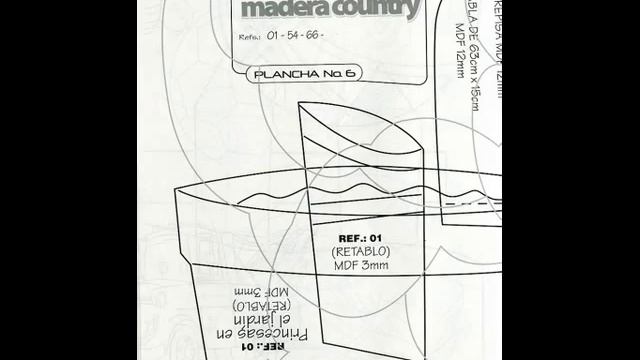 madera country
Refs.: 01 - 54 - 66 -
PLANCHA No. 6
REPISA MDF 12mm
BLA DE 63cm x 15cm
MDF 12mm
REF.: 01
(RETABLO)
MDF 3mm
REF.: 01
Princesas en
el jardín
(RETABLO)
MDF 3mm